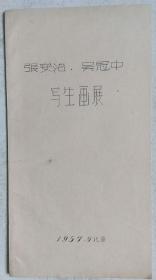 張安治．吴冠中
写生画展
1957.9北京